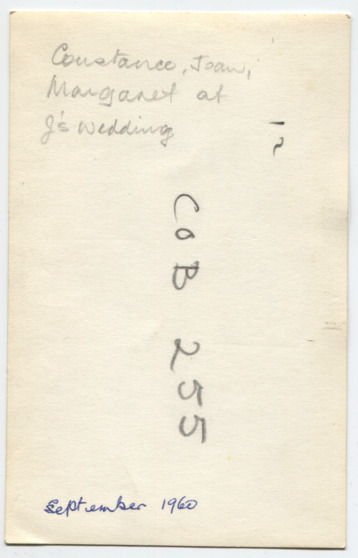 Constance, Joan,
Margaret at
J's Wedding
COB 255
September 1960